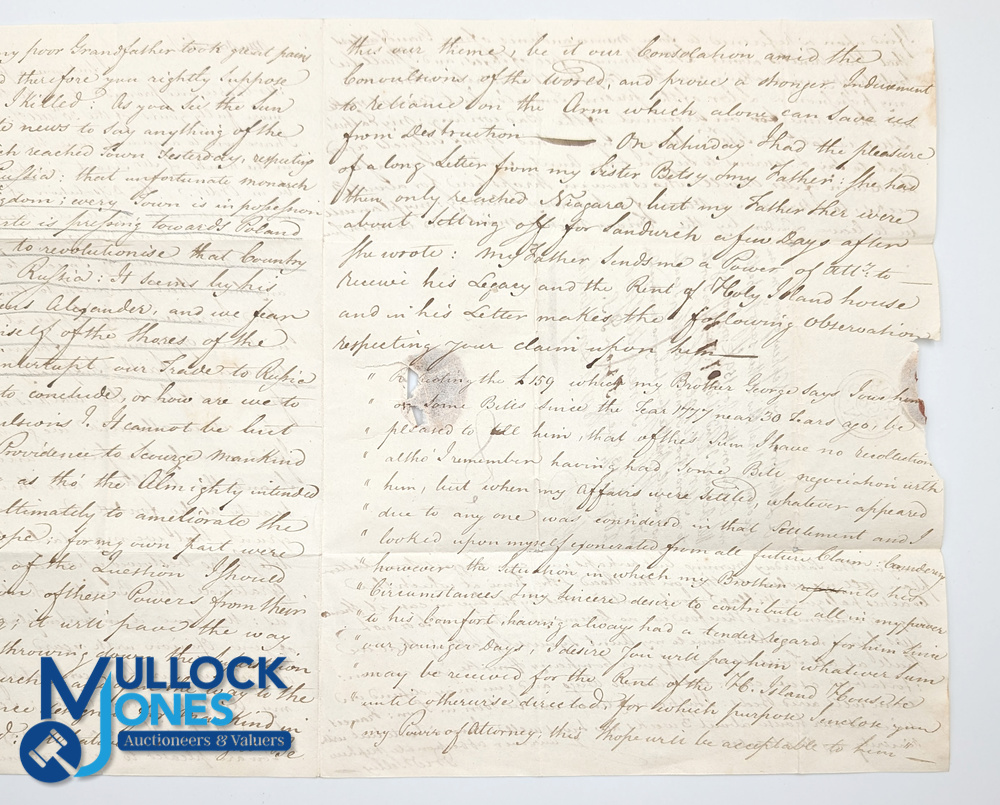 my poor Grandfather took great pains
d therefore you rightly Suppose
I killed? As you See the Sun
te news to say anything of the
ch reached Town Yesterday, respecting
Russia: that unfortunate monarch
gdom; every Town is in possession
is pressing towards Poland
to revolutionise that Country
Russia: It Seems by his
Alexander, and we fear
self of the Shores of the
interrupt our Trade to Russia
to conclude, or how are we to
ulsions? It cannot be but
Providence to Scourge Mankind
as tho' the Almighty intended
ultimately to ameliorate the
ope; for my own part were
of the Question I Should
of these Powers from their
; it will pave the way
throwing down the
the way to the
in
this our theme, be it our Consolation amid the
Convulsions of the World, and prove a stronger Inducement
to reliance on the Arm which alone can Save us
from Destruction — On Saturday I had the pleasure
of a long Letter from my Sister Betsy & my Father; She had
then only reached Niagara but my Father & her were
about Setting off for Sandwich a few Days after
She wrote: My Father Sends me a Power of Atty. to
receive his Legacy and the Rent of Holy Island house
and in his Letter makes the following Observation
respecting your claim upon him —
" Regarding the £159 which my Brother George Says I owe him
" on Some Bills Since the Year 1777 near 30 Years ago, be
" pleased to tell him, that of this Sum I have no recollection
" altho' I remember having had Some Bill negociation with
" him, but when my affairs were Settled, whatever appeared
" due to any one was considered in that Settlement and I
" looked upon myself exonerated from all future Claim: Considering
" however the Situation in which my Brother his
" Circumstances & my Sincere desire to contribute all in my power
" to his Comfort, having always had a tender regard for him Since
" our younger Days; I desire you will pay him whatever Sum
" may be received for the Rent of the H. Island House &c
" until otherwise directed, for which purpose I inclose you
my Power of Attorney, this I hope will be acceptable to him — "
MULLOCK
JONES
Auctioneers & Valuers